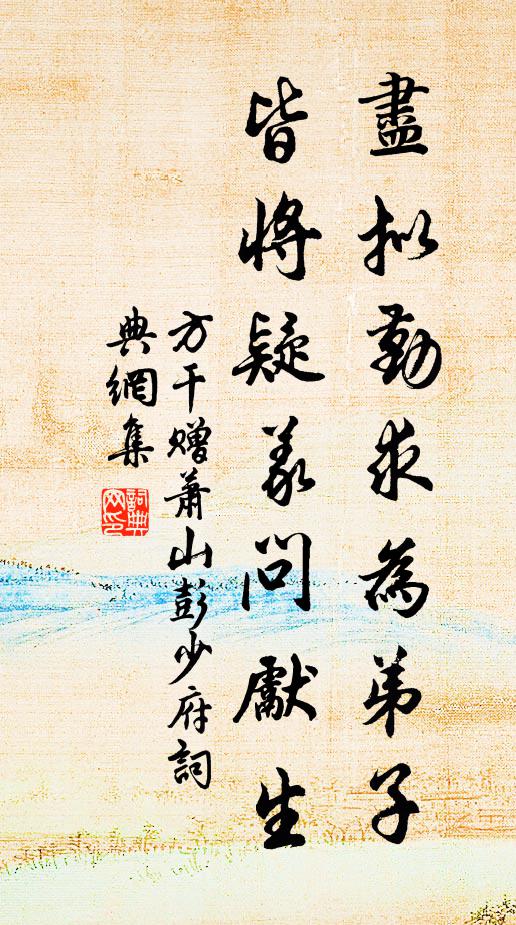 盡拟勤求為弟子
皆將疑義問獻生
方干赠蕭山彭少府詞
典網集
詞典
网印